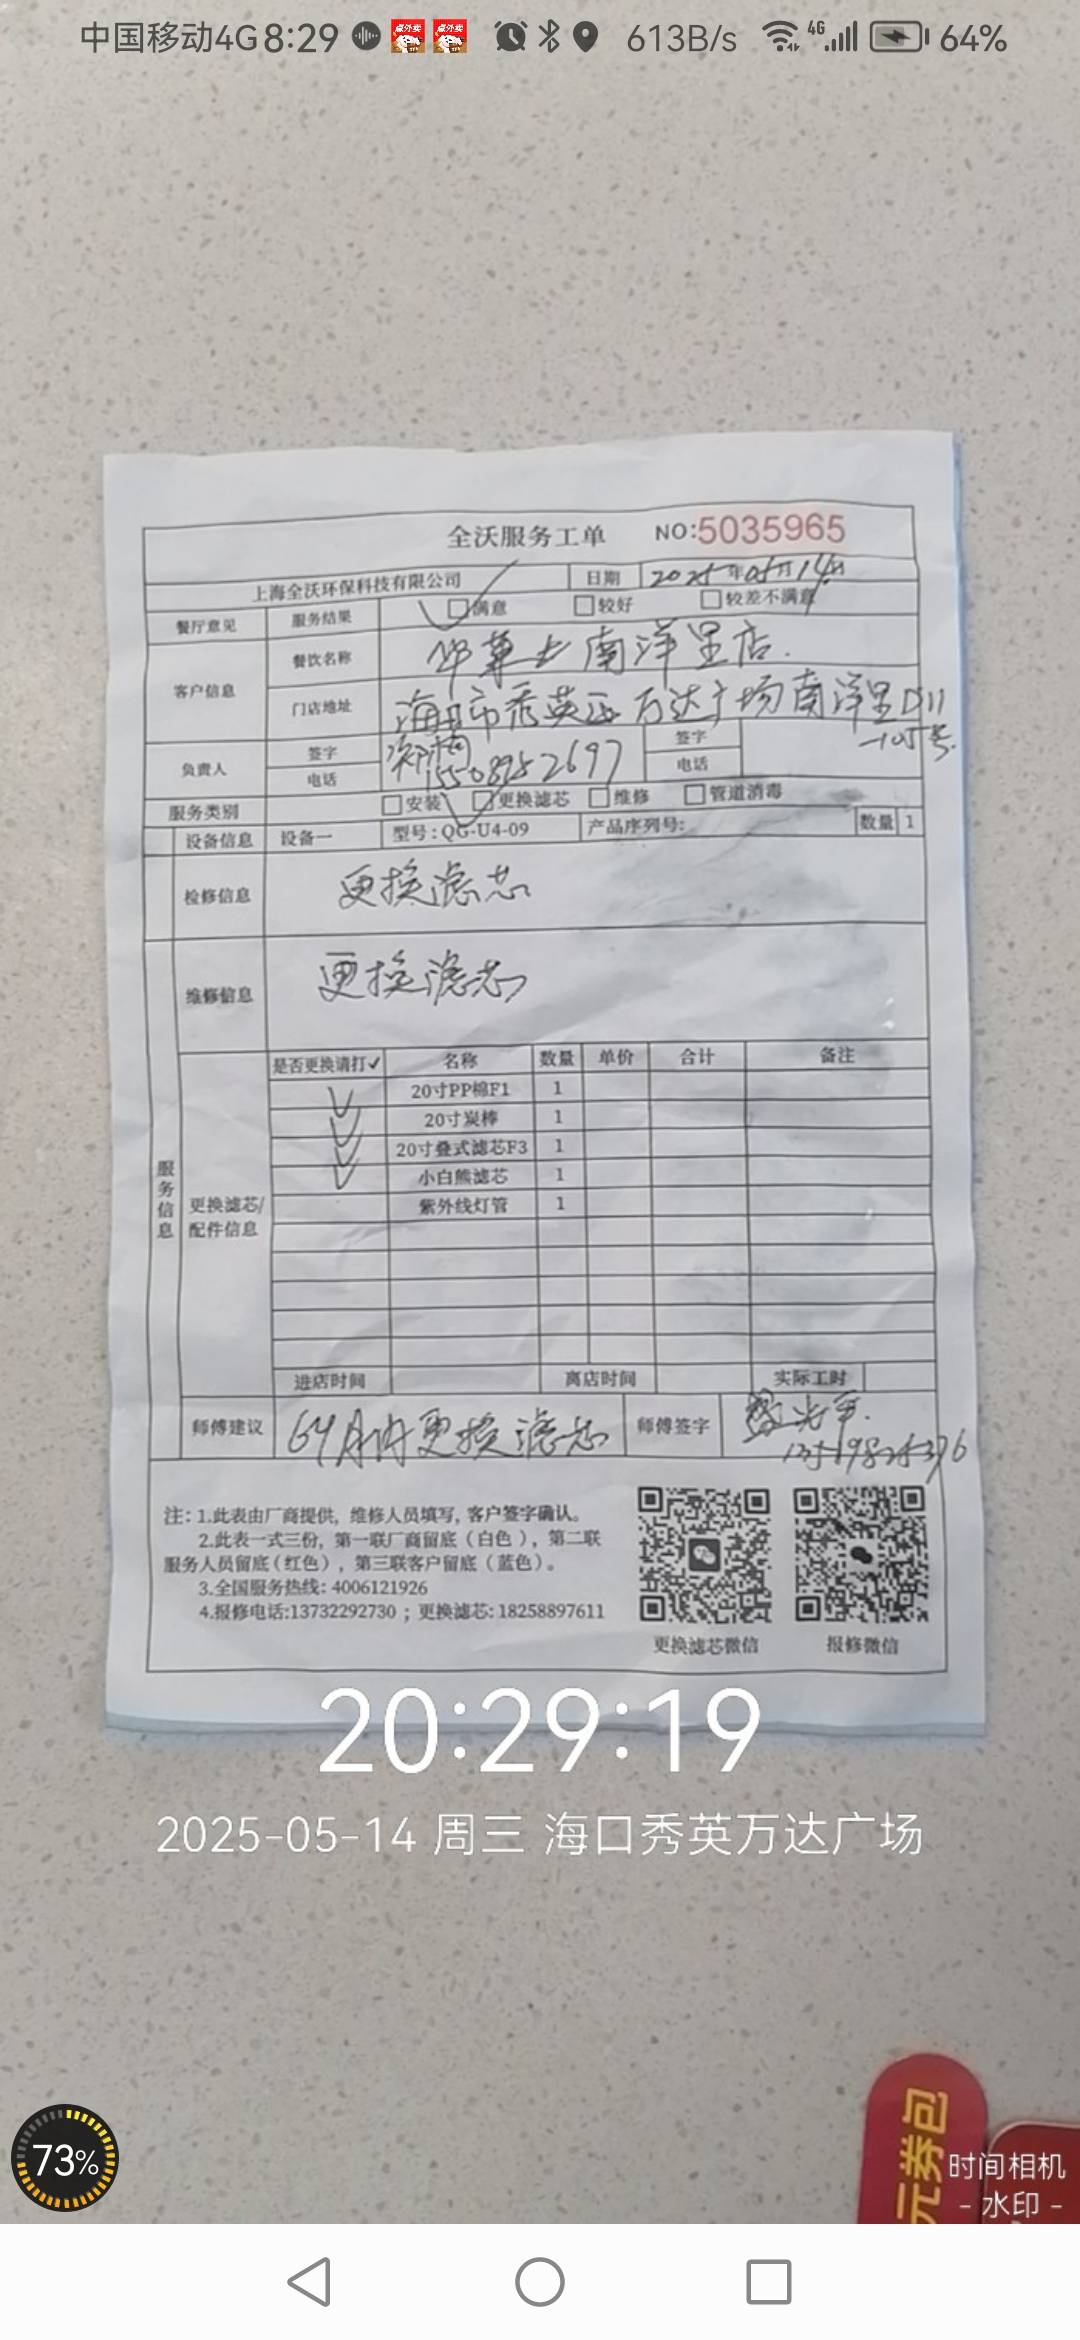 中国移动4G 8:29 613B/s 4G 64%
全沃服务工单 NO:5035965
上海全沃环保科技有限公司 日期 2025年05月14日
餐厅意见 服务结果 满意 较好 较差不满意
客户信息 餐饮名称 华莱士南洋里店.
门店地址 海口市秀英区万达广场南洋里D11
-105号.
负责人 签字 签字
电话 15508952697 电话
服务类别 安装 更换滤芯 维修 管道消毒
设备信息 设备一 型号:QG-U4-09 产品序列号: 数量 1
检修信息 更换滤芯
维修信息 更换滤芯
服务信息
更换滤芯/配件信息
是否更换请打✓ 名称 数量 单价 合计 备注
✓ 20寸PP棉F1 1
✓ 20寸炭棒 1
✓ 20寸叠式滤芯F3 1
✓ 小白熊滤芯 1
紫外线灯管 1
进店时间 离店时间 实际工时
师傅建议 6个月内更换滤芯 师傅签字
注: 1.此表由厂商提供, 维修人员填写, 客户签字确认。
2.此表一式三份, 第一联厂商留底(白色), 第二联
服务人员留底(红色), 第三联客户留底(蓝色)。
3.全国服务热线: 4006121926
4.报修电话:13732292730 ; 更换滤芯: 18258897611
更换滤芯微信 报修微信
20:29:19
2025-05-14 周三 海口秀英万达广场
73%
元券包
时间相机
- 水印 -